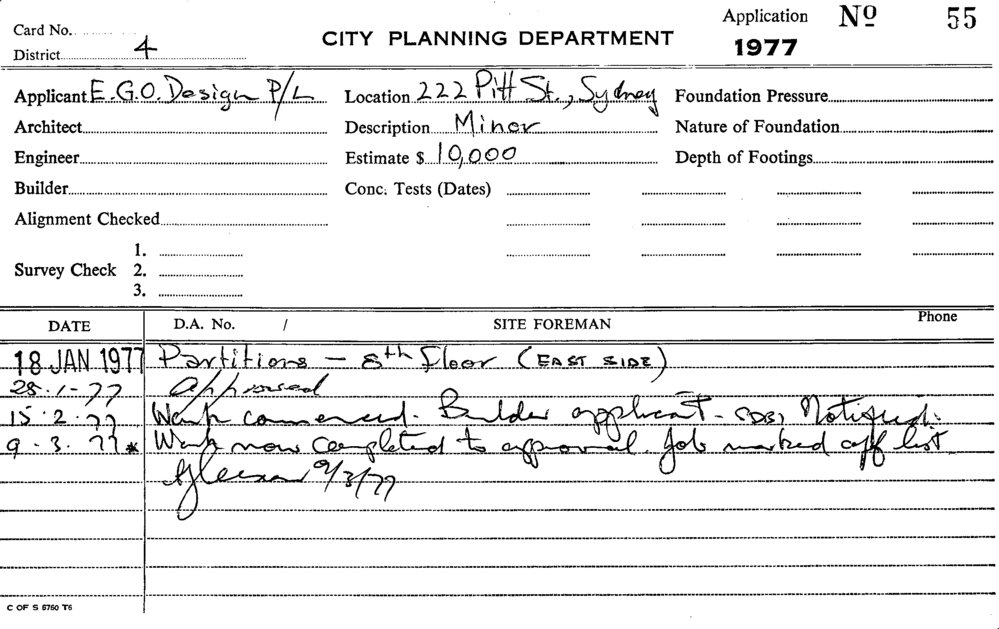 Card No.
District 4
CITY PLANNING DEPARTMENT
Application Nº 55
1977
Applicant E.G.O. Design P/L
Location 222 Pitt St., Sydney
Foundation Pressure
Architect
Description Minor
Nature of Foundation
Engineer
Estimate $ 10,000
Depth of Footings
Builder
Conc. Tests (Dates)
Alignment Checked
Survey Check 1.
2.
3.
DATE D.A. No. / SITE FOREMAN Phone
18 JAN 1977 Partitions - 8th floor (EAST SIDE)
28.1-77 Approved
15.2.77 Work commenced. Builder applicant - Notified.
9.3.77 * Work now completed to approval. Job marked off list
9/3/77
C OF S 6760 T6